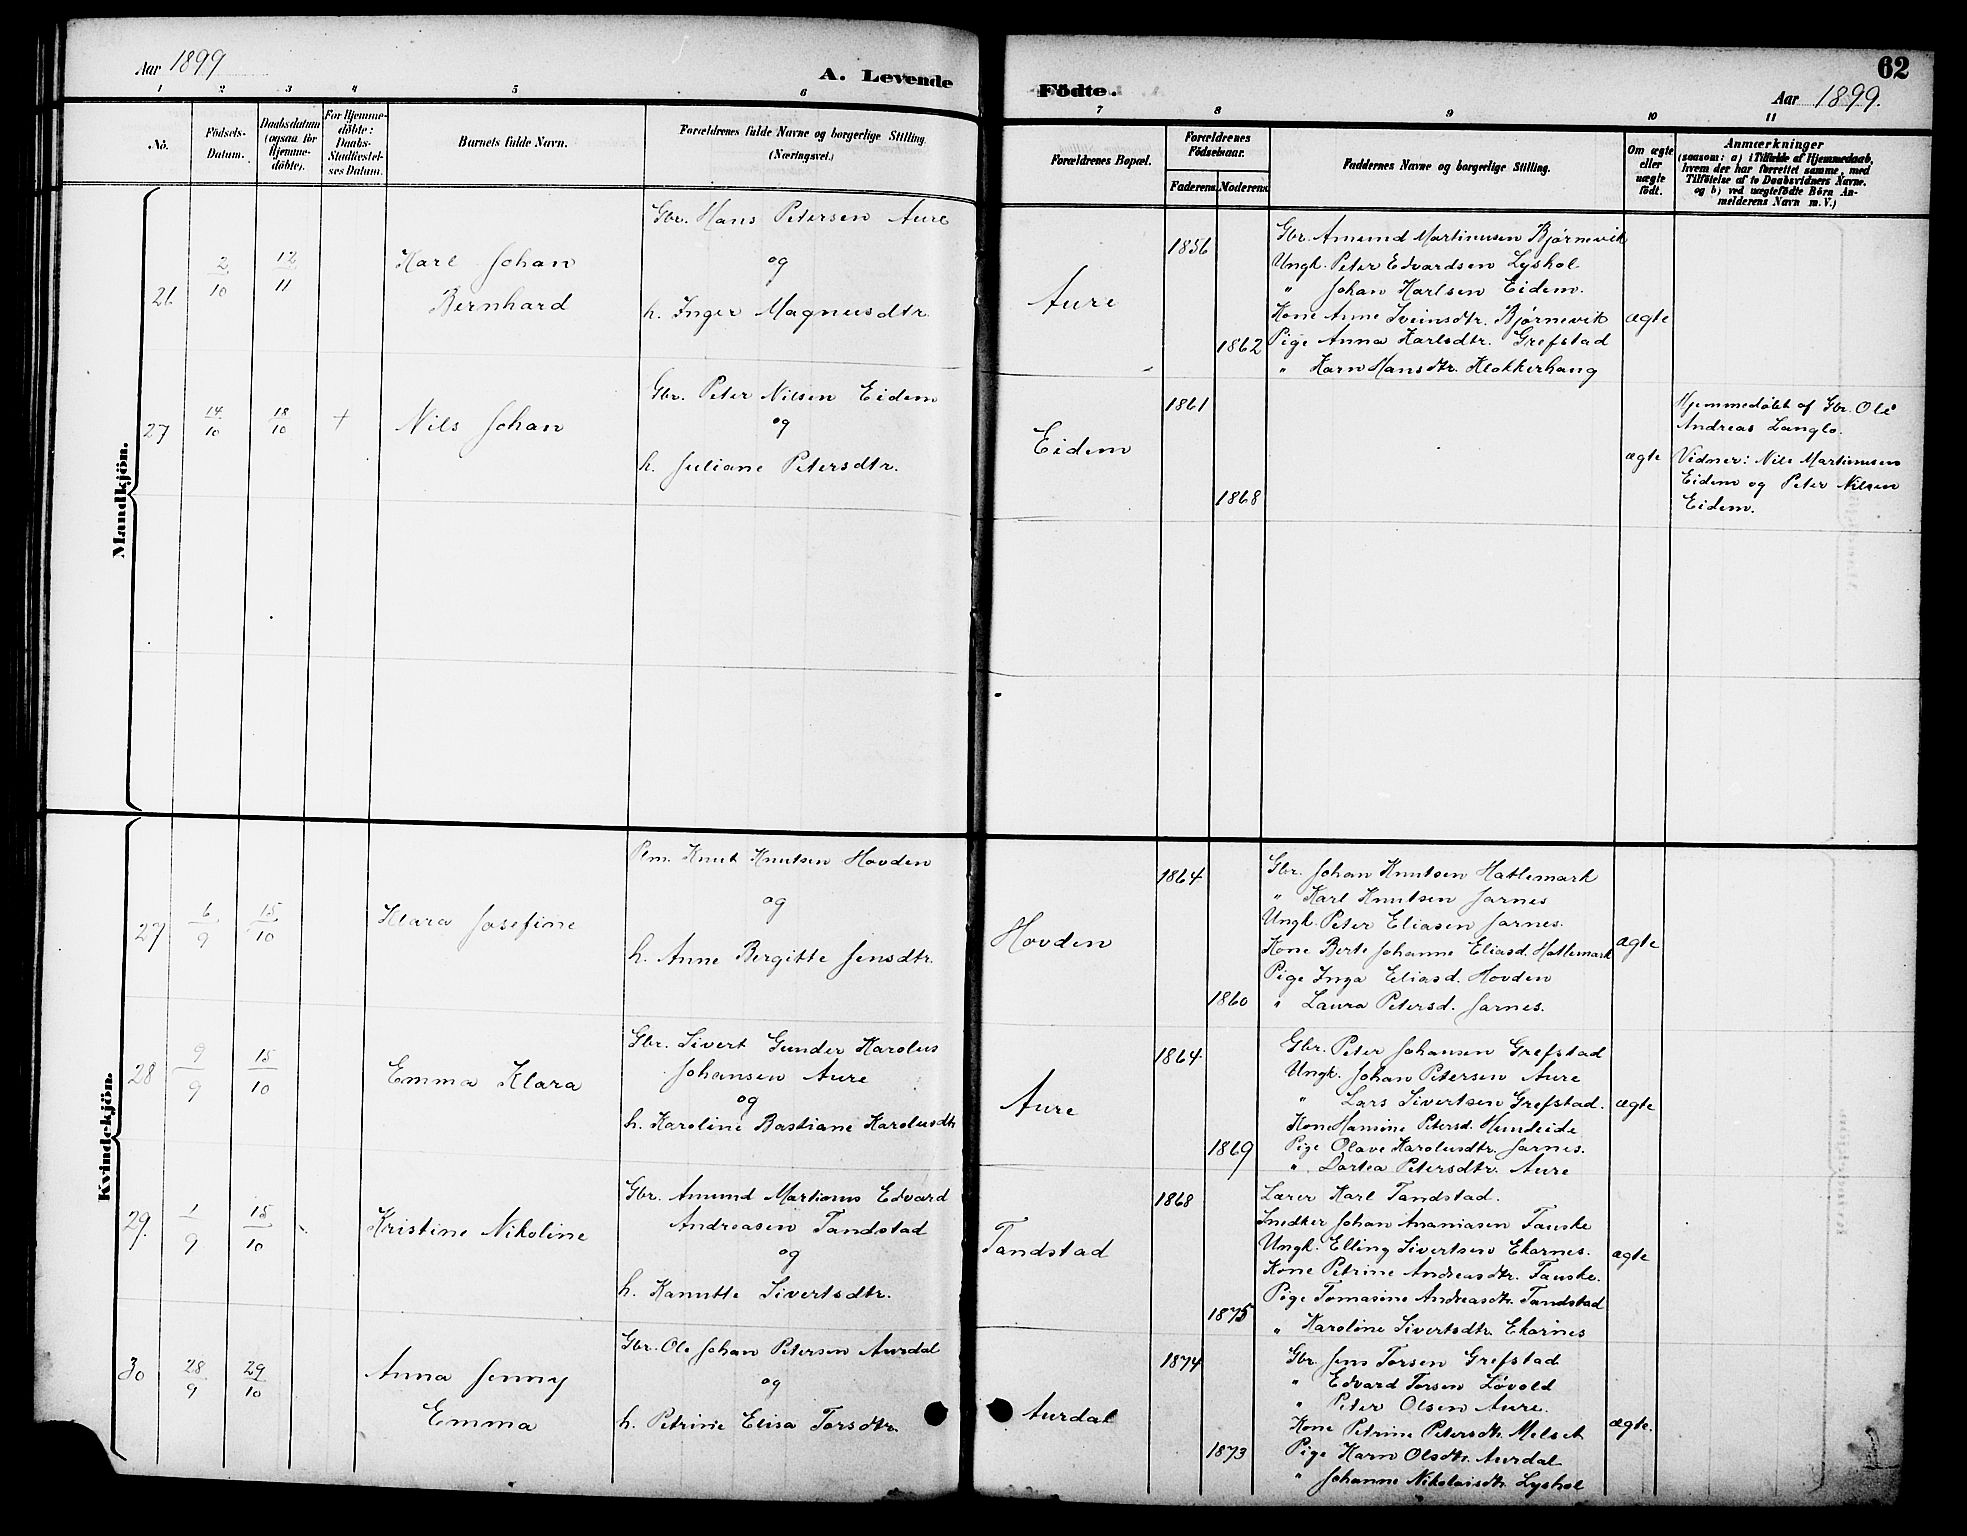 Aar 1899
A. Levende
Födte.
62
Aar 1899.
1 2 3 4 5 6 7 8 9 10 11
No.
Födsels-Datum.
Daabsdatum (ogsaa for Hjemme-döbte).
For Hjemme-döbte: Daabs-Stadfæstel-ses Datum.
Barnets fulde Navn.
Forældrenes fulde Navne og borgerlige Stilling.
(Næringsvei.)
Forældrenes Bopæl.
Forældrenes Födselsaar.
Faderens. Moderens.
Faddernes Navne og borgerlige Stilling.
Om ægte eller uægte födt.
Anmærkninger
(saasom: a) i Tilfælde af Hjemmedaab,
hvem der har forrettet samme, med
Tilföielse af to Daabsvidners Navne.
og b) ved uægtefödte Börn An-
melderens Navn m. V.)
Mandkjön.
26 2/10 12/11
Karl Johan
Bernhard
Gbr. Hans Petersen Aure
og
h. Inger Magnusdtr.
Aure
1856
1862
Gbr. Amund Martinusen Bjørnevik
Ungk. Peter Edvardsen Lyshol
" Johan Karlsen Eidem.
Kone Anne Sveinsdtr. Bjørnevik
Pige Anna Karlsdtr. Grefstad
" Karn Hansdtr. Klokkerhaug
ægte
27 14/10 18/10 +
Nils Johan
Gbr. Peter Nilsen Eidem
og
h. Juliane Petersdtr.
Eidem
1861
1868
ægte
Hjemmedøbt af Gbr. Ole
Andreas Langlo.
Vidner: Nils Martinusen
Eidem og Peter Nilsen
Eidem.
Kvindekjön.
27 6/9 15/10
Klara Josefine
Pm. Knut Knutsen Hovden
og
h. Anne Bergitte Jensdtr.
Hovden
1864
1860
Gbr. Johan Knutsen Hatlemark
" Karl Knutsen Jarnes
Ungk. Peter Eliasen Jarnes.
Kone Berte Johanne Eliasd. Hatlemark
Pige Inga Eliasd. Hovden
" Laura Petersd. Jarnes.
ægte
28 9/9 15/10
Emma Klara
Gbr. Sivert Gunder Karolus
Johansen Aure
og
h. Karoline Bastiane Karolusdtr
Aure
1864
1869
Gbr. Peter Johansen Grefstad
Ungk. Johan Petersen Aure
" Lars Sivertsen Grefstad.
Kone Hansine Petersd. Hundeide
Pige Olave Karolusdtr. Jarnes.
" Dortea Petersdtr. Aure
ægte
29. 1/9 15/10
Kristine Nikoline
Gbr. Amund Martinus Edvard
Andreasen Tandstad
og
h. Kanutte Sivertsdtr.
Tandstad
1868
1875
Lærer Karl Tandstad.
Snedker Johan Ananiasen Fauske
Ungk. Elling Sivertsen Ekornes.
Kone Petrine Andreasdtr. Fauske.
Pige Tomasine Andreasdtr. Tandstad
" Karoline Sivertsdtr. Ekornes
ægte
30 28/9 29/10
Anna Jenny
Emma
Gbr. Ole Johan Petersen Aurdal
og
h. Petrine Elisa Torsdtr.
Aurdal
1874
1873
Gbr. Jens Torsen Grefstad
" Edvard Torsen Løvold
" Peter Olsen Aure.
Kone Petrine Petersdtr. Melset
Pige Karn Olsdtr. Aurdal
" Johanne Nikolaisdtr. Lyshol
ægte.